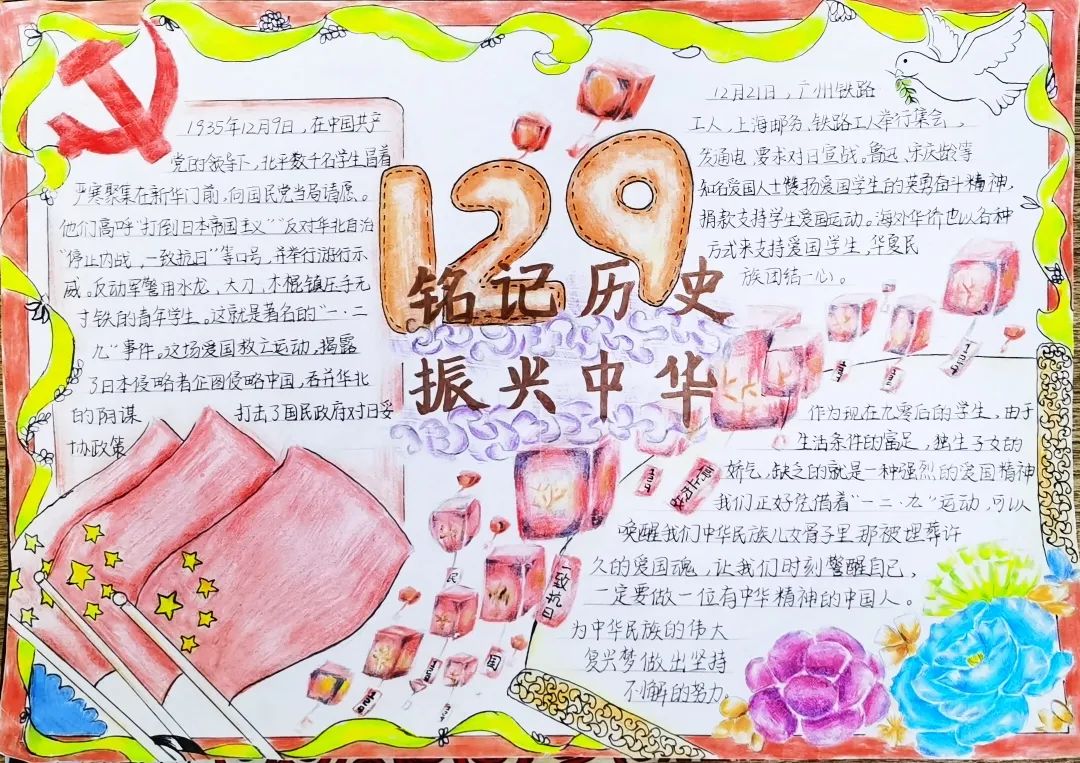 129
铭记历史
振兴中华
1935年12月9日，在中国共产
党的领导下，北平数千名学生冒着
严寒聚集在新华门前，向国民党当局请愿。
他们高呼"打倒日本帝国主义""反对华北自治
"停止内战，一致抗日"等口号，并举行游行示
威。反动军警用水龙、大刀、木棍镇压手无
寸铁的青年学生。这就是著名的"一·二
九"事件。这场爱国救亡运动，揭露
了日本侵略者企图侵略中国，吞并华北
的阴谋 打击了国民政府对日妥
协政策
12月21日，广州铁路
工人，上海邮务、铁路工人举行集会，
发通电 要求对日宣战。鲁迅、宋庆龄等
知名爱国人士赞扬爱国学生的英勇奋斗精神，
捐款支持学生爱国运动。海外华侨也以各种
方式来支持爱国学生，华夏民
族团结一心。
作为现在九零后的学生，由于
生活条件的富足，独生子女的
娇气，缺乏的就是一种强烈的爱国精神
我们正好凭借着"一二·九"运动，可以
唤醒我们中华民族儿女骨子里那被埋葬许
久的爱国魂，让我们时刻警醒自己，
一定要做一位有中华精神的中国人。
为中华民族的伟大
复兴梦做出坚持
不懈的努力。
一致抗日
民
国